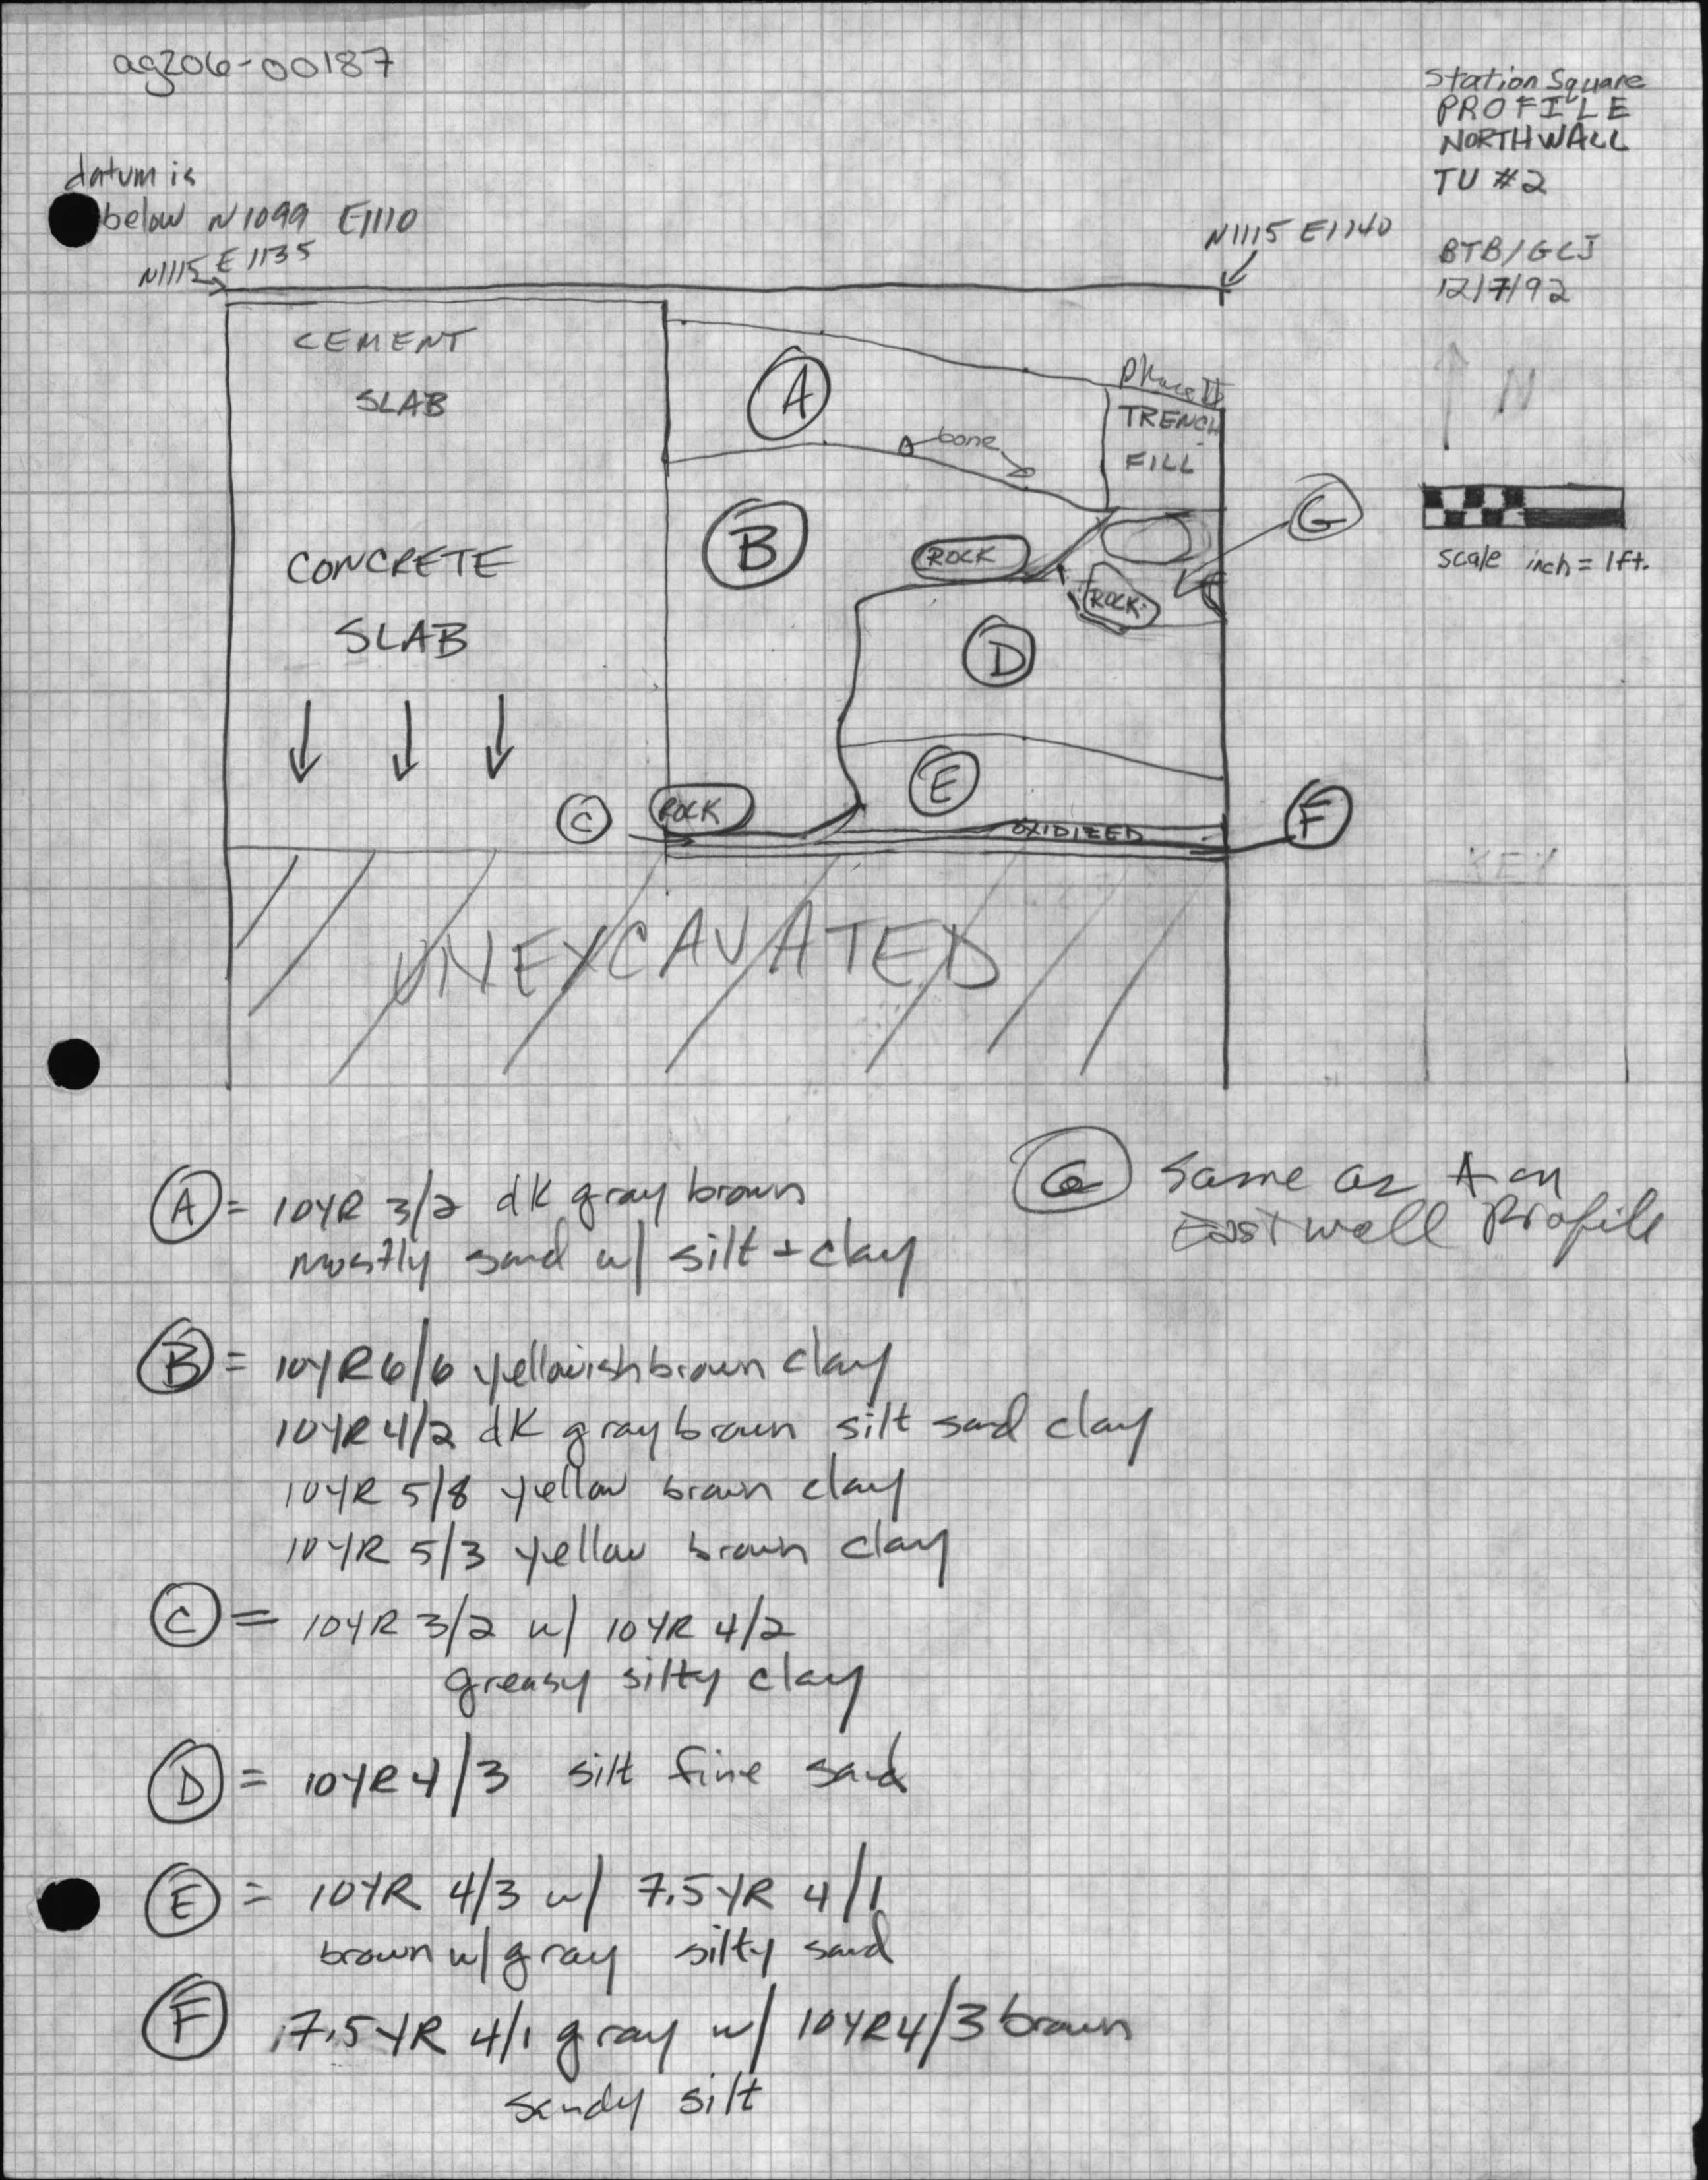 ag206-00187
Station Square
PROFILE
NORTH WALL
TU #2
BTB/GCJ
12/7/92
datum is
below N1099 E1110
N1115 E1135
N1115 E1140
CEMENT
SLAB
A
Phase II
TRENCH
FILL
bone
N
G
B
ROCK
scale inch = 1ft.
CONCRETE
SLAB
ROCK
D
E
C
ROCK
OXIDIZED
F
KEY
UNEXCAVATED
A = 10YR 3/2 dk gray brown
mostly sand w/ silt + clay
G Same as A on
East wall Profile
B = 10YR 6/6 yellowish brown clay
10YR 4/2 dk gray brown silt sand clay
10YR 5/8 yellow brown clay
10YR 5/3 yellow brown clay
C = 10YR 3/2 w/ 10YR 4/2
greasy silty clay
D = 10YR 4/3 silt fine sand
E = 10YR 4/3 w/ 7.5YR 4/1
brown w/ gray silty sand
F 7.5YR 4/1 gray w/ 10YR 4/3 brown
sandy silt